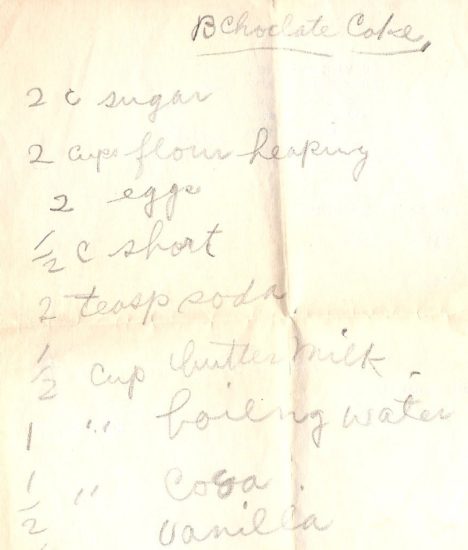 B Choclate Cake,
2 c sugar
2 cups flour heaping
2 eggs
1/2 c short
2 teasp soda.
1/2 cup butter milk.
1 " boiling water
1/2 " Cocoa.
vanilla